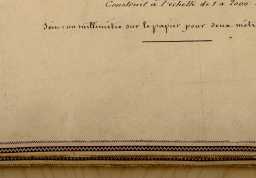 Construit à l'échelle de 1 à 2000
Soit un millimètre sur le papier pour deux mèt